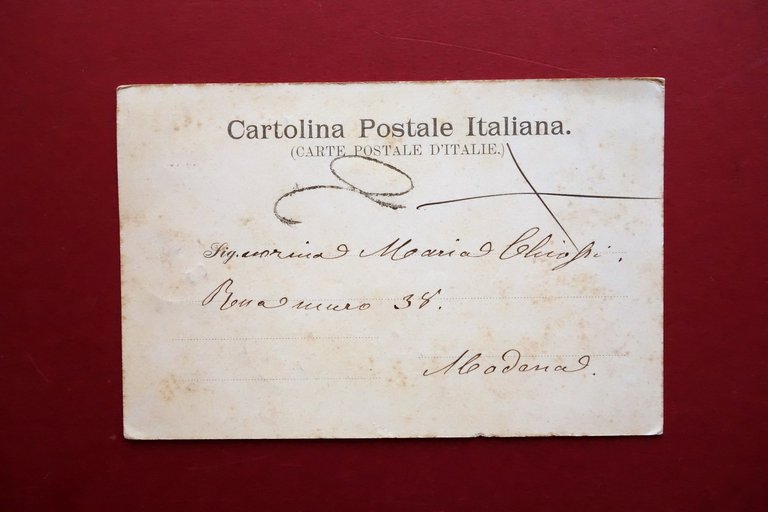 Cartolina Postale Italiana.
(CARTE POSTALE D'ITALIE.)
Signorina Maria Chiossi.
Rua muro 38.
Modena.